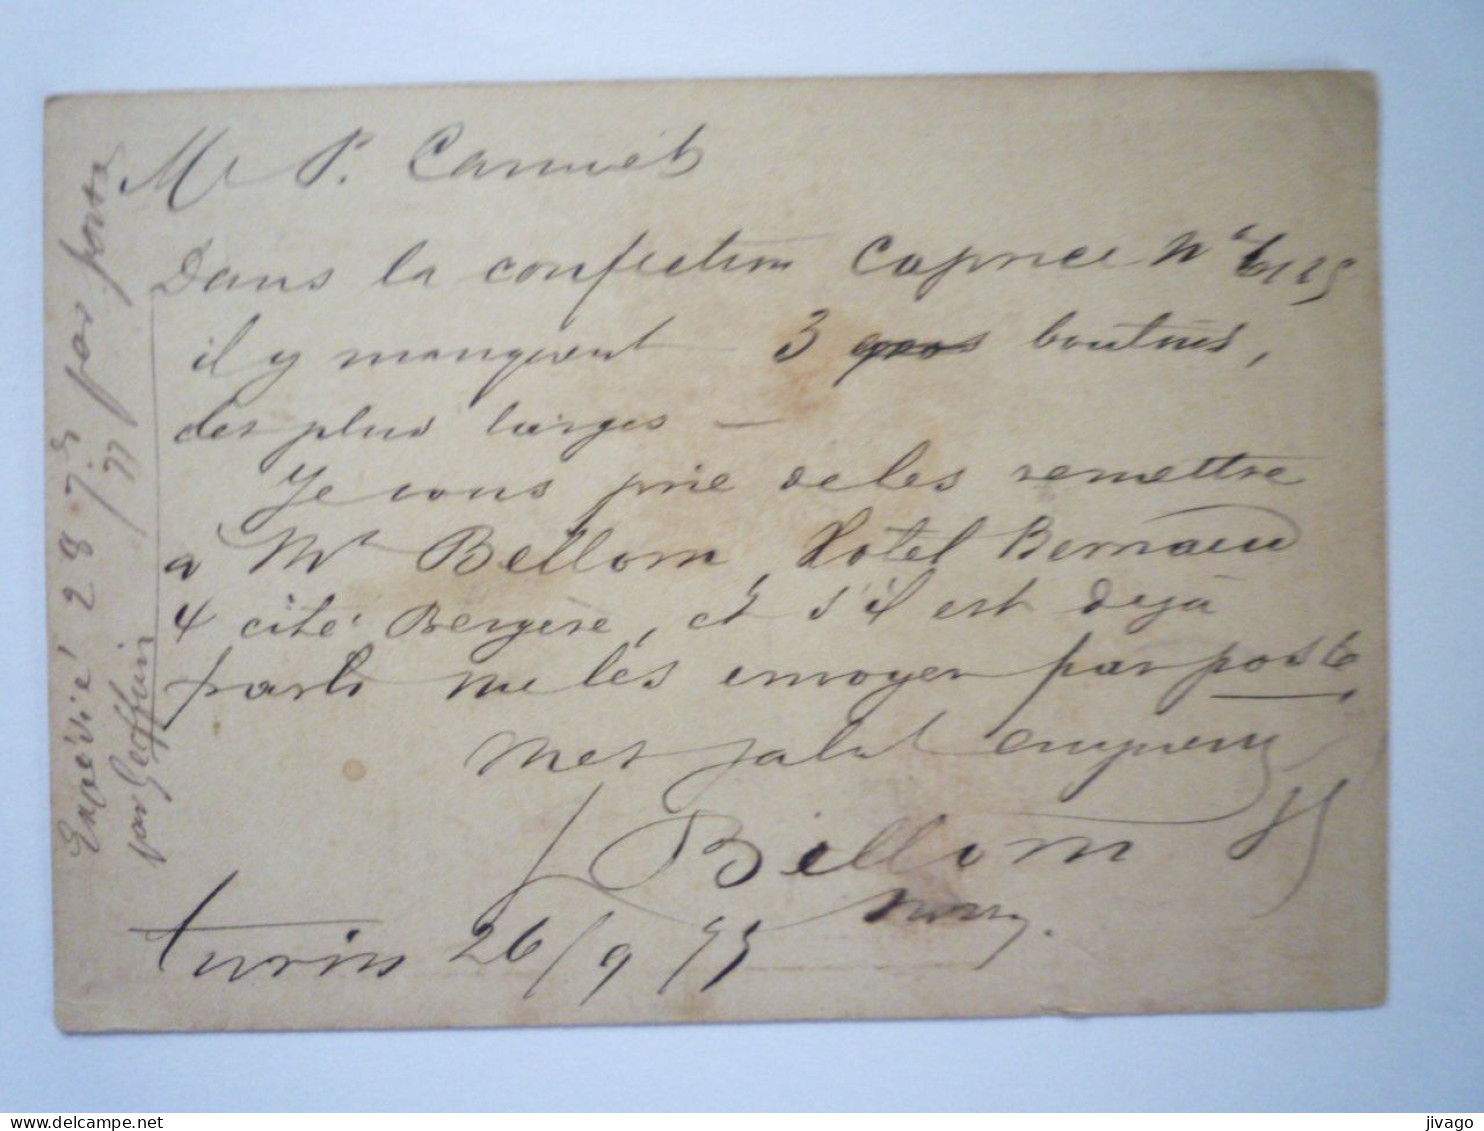 Mr P. Carmiet
Dans la confection Caprice No 6125
il y manquent 3 gros boutons,
des plus larges —
Je vous prie de les remettre
a Mr Bellom Hotel Bernaud
4 cité Bergère, et s'il est dejà
parti me les envoyer par poste
Mes salut empressés
J Bellom
Turin 26/9/77
Expédié 28 7bre /77 par poste
par Geoffrin
jivago
delcampe.net